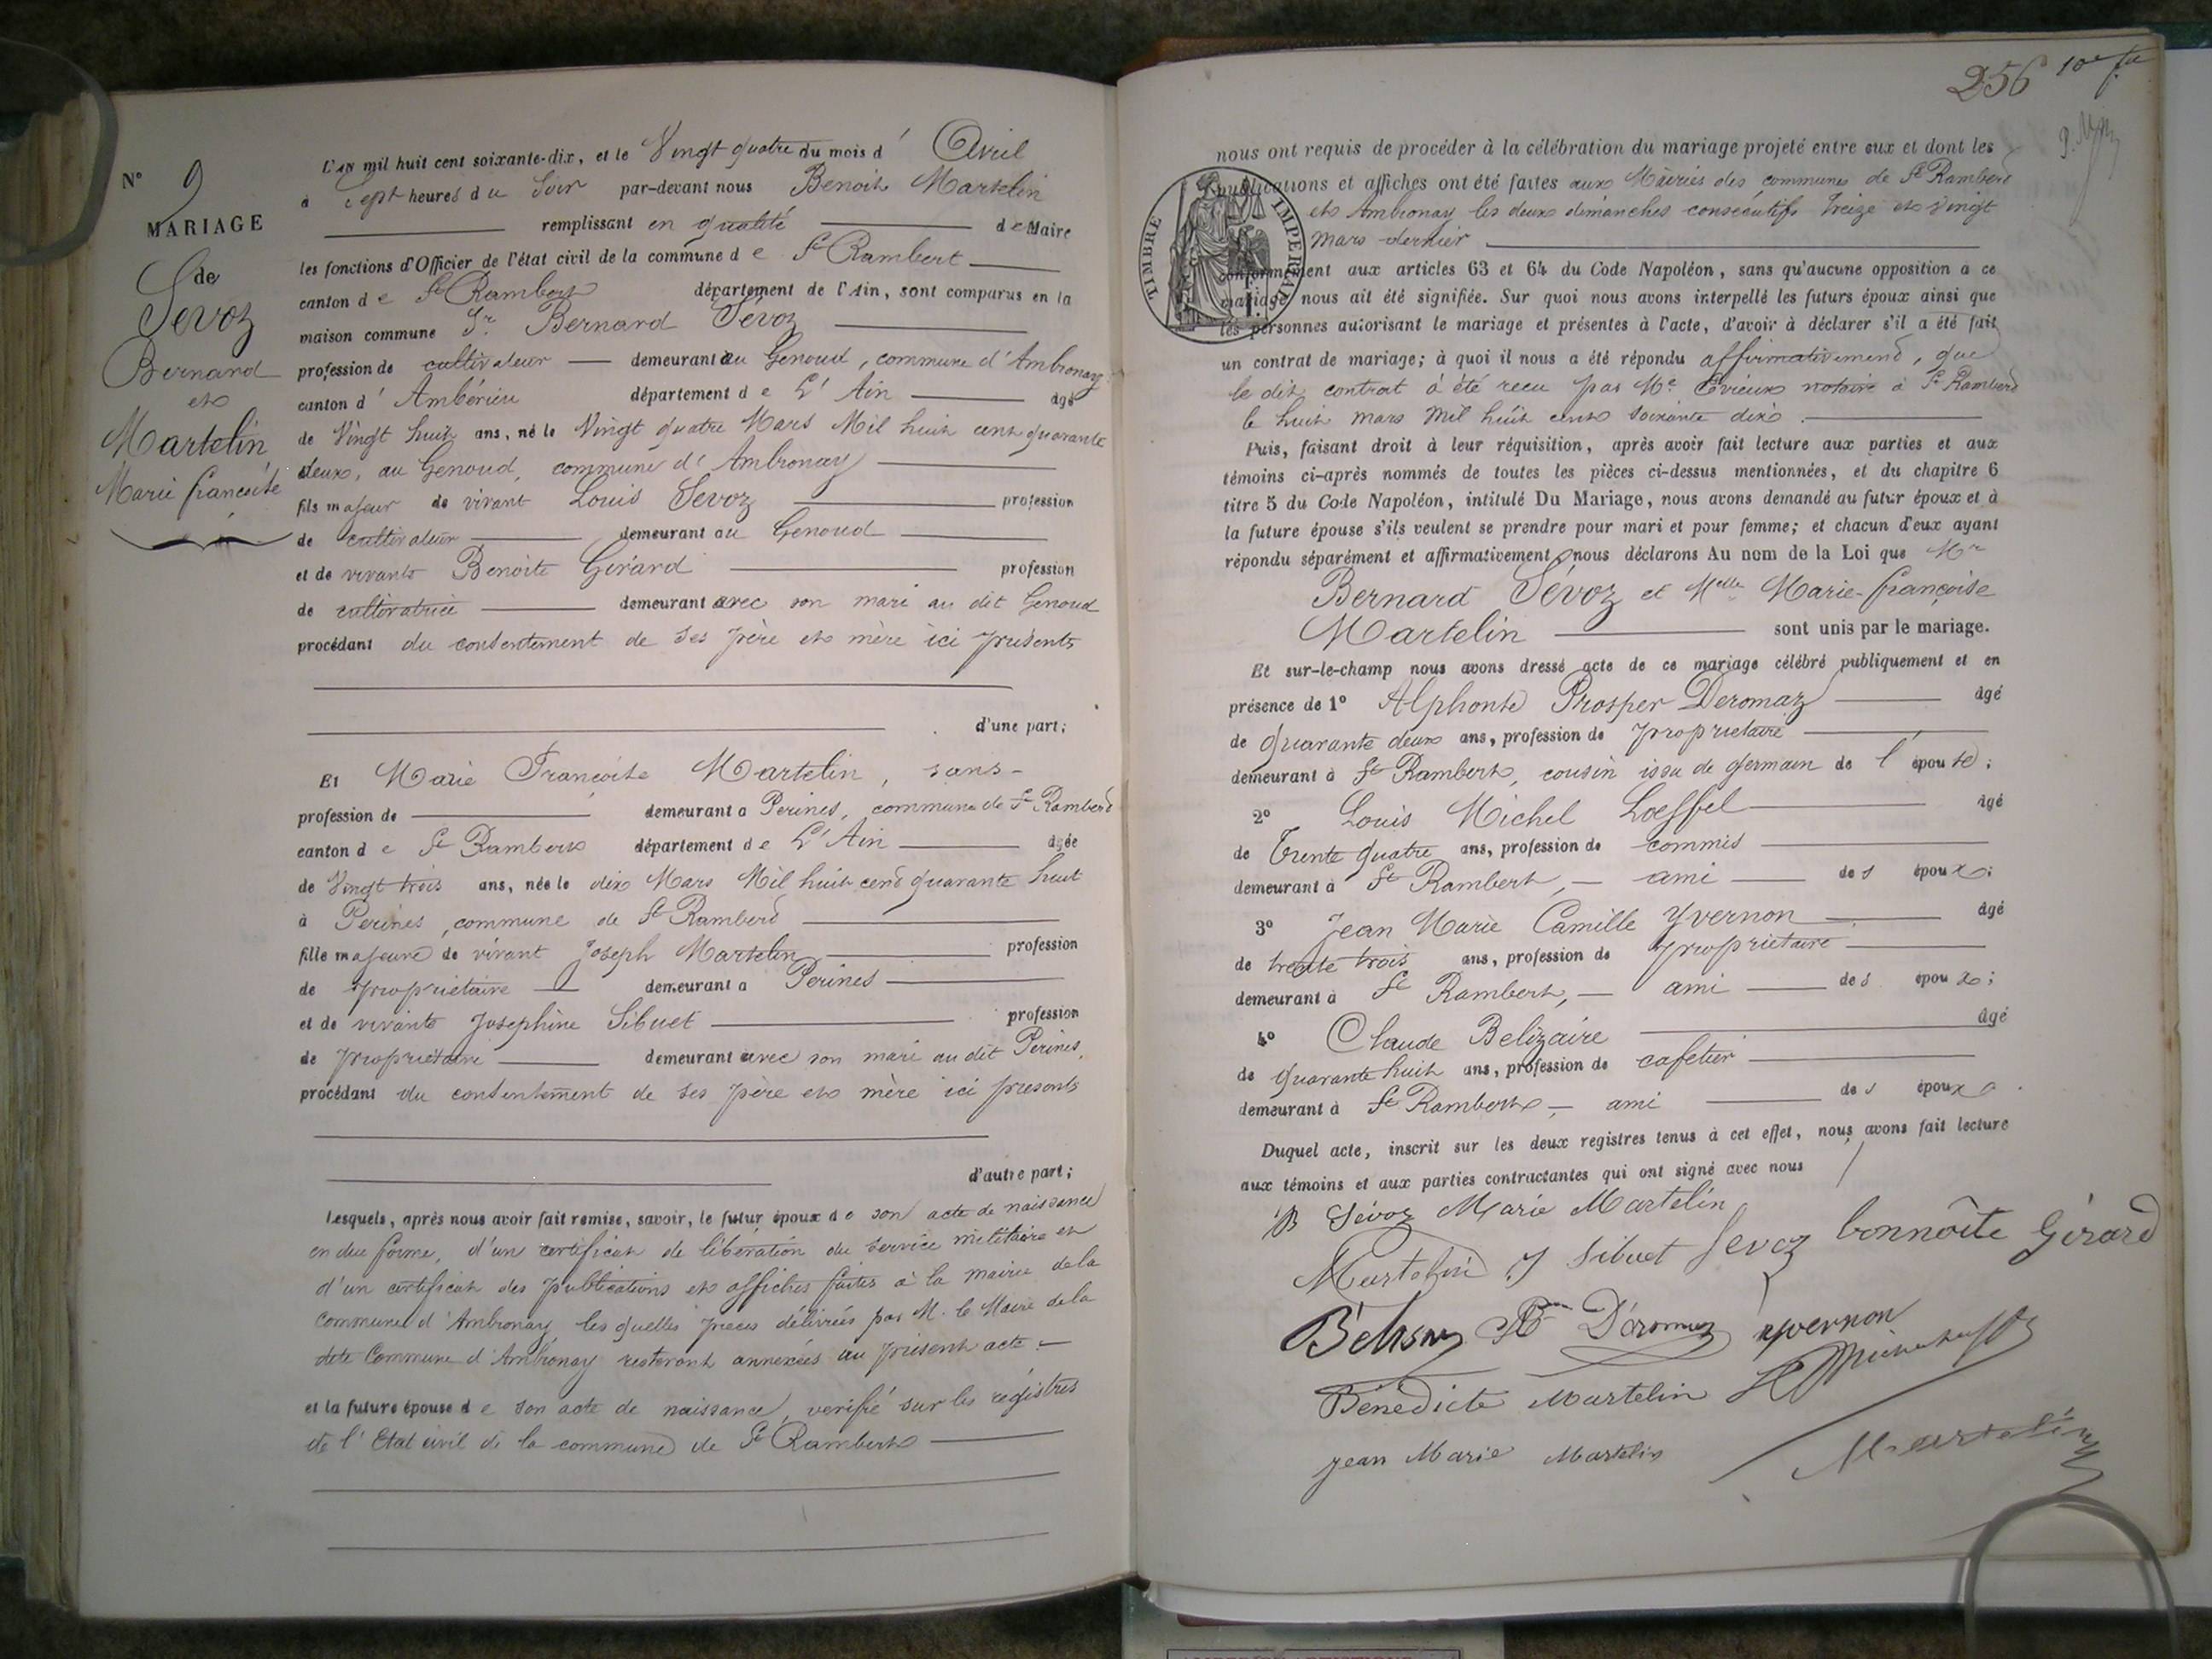 N° 9
MARIAGE
de
Sevoz
Bernard
et
Martelin
Marie françoise
L'AN mil huit cent soixante-dix, et le Vingt quatre du mois d' Avril
à Sept heures du Soir par-devant nous Benoit Martelin
remplissant en qualité de Maire
les fonctions d'Officier de l'état civil de la commune de St Rambert
canton de St Rambert département de l'Ain, sont comparus en la
maison commune Sr Bernard Sevoz
profession de cultivateur demeurant au Genoud, commune d'Ambronay
canton d' Ambérieu département de L'Ain âgé
de Vingt huit ans, né le Vingt quatre Mars Mil huit cent quarante
deux, au Genoud, commune d'Ambronay
fils majeur de vivant Louis Sevoz profession
de cultivateur demeurant au Genoud
et de vivante Benoite Gérard profession
de cultivatrice demeurant avec son mari au dit Genoud
procédant du consentement de ses père et mère ici présents
d'une part;
Et Marie Françoise Martelin, sans-
profession de demeurant a Perines, commune de St Rambert
canton de St Rambert département de L'Ain âgée
de Vingt trois ans, née le dix Mars Mil huit cent quarante huit
à Perines, commune de St Rambert
fille majeure de vivant Joseph Martelin profession
de propriétaire demeurant a Perines
et de vivante Josephine Sibuet profession
de propriétaire demeurant avec son mari au dit Perines.
procédant du consentement de ses père et mère ici présents
d'autre part;
Lesquels, après nous avoir fait remise, savoir, le futur époux de son acte de naissance
en due forme, d'un certificat de libération du service militaire et
d'un certificat des publications et affiches faites à la mairie de la
commune d'Ambronay, les quelles pièces délivrées par M. le Maire de la
dite Commune d'Ambronay resteront annexées au présent acte.-
et la future épouse de son acte de naissance, verifié sur les régistres
de l'Etat civil de la commune de St Rambert
256 10e
nous ont requis de procéder à la célébration du mariage projeté entre eux et dont les
publications et affiches ont été faites aux Mairies des communes de St Rambert
et Ambronay les deux dimanches consécutifs treize et vingt
mars dernier
TIMBRE IMPERIAL
conformément aux articles 63 et 64 du Code Napoléon, sans qu'aucune opposition à ce
mariage nous ait été signifiée. Sur quoi nous avons interpellé les futurs époux ainsi que
les personnes autorisant le mariage et présentes à l'acte, d'avoir à déclarer s'il a été fait
un contrat de mariage; à quoi il nous a été répondu affirmativement, que
le dit contrat à été recu par Me notaire à St Rambert
le huit mars mil huit cent soixante dix.
Puis, faisant droit à leur réquisition, après avoir fait lecture aux parties et aux
témoins ci-après nommés de toutes les pièces ci-dessus mentionnées, et du chapitre 6
titre 5 du Code Napoléon, intitulé Du Mariage, nous avons demandé au futur époux et à
la future épouse s'ils veulent se prendre pour mari et pour femme; et chacun d'eux ayant
répondu séparément et affirmativement, nous déclarons Au nom de la Loi que Mr
Bernard Sévoz et Melle Marie-françoise
Martelin sont unis par le mariage.
Et sur-le-champ nous avons dressé acte de ce mariage célébré publiquement et en
présence de 1° Alphonse Prosper Deromaz âgé
de quarante deux ans, profession de propriétaire
demeurant à St Rambert, cousin issu de germain de l'épouse;
2° Louis Michel Loeffel âgé
de Trente quatre ans, profession de commis
demeurant à St Rambert, - ami des époux;
3° Jean Marie Camille Yvernon âgé
de trente trois ans, profession de propriétaire
demeurant à St Rambert, - ami des époux;
4° Claude Belizaire âgé
de quarante huit ans, profession de cafetier
demeurant à St Rambert, - ami des époux.
Duquel acte, inscrit sur les deux registres tenus à cet effet, nous avons fait lecture
aux témoins et aux parties contractantes qui ont signé avec nous
B Sévoz Marie Martelin
Martelin J Sibuet Sevoz bonnoîte Gérard
Deromaz yvernon
Bénédicte Martelin
jean Marie Martelin Martelin